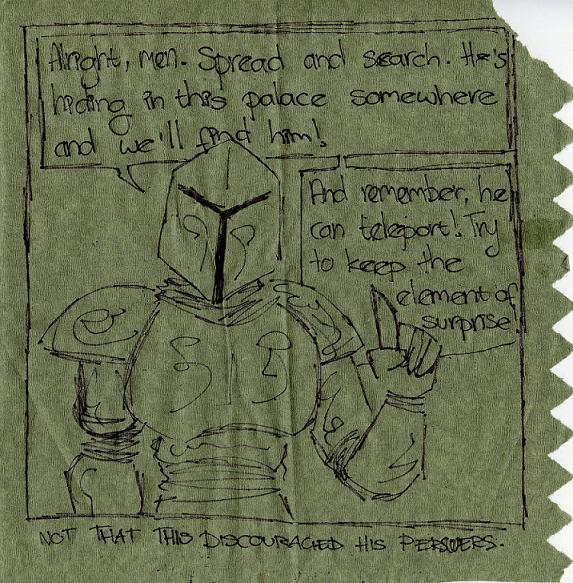 Alright, men. Spread and search. He's
hiding in this palace somewhere
and we'll find him!
And remember, he
can teleport! Try
to keep the
element of
surprise!
NOT THAT THIS DISCOURAGED HIS PERSUERS.